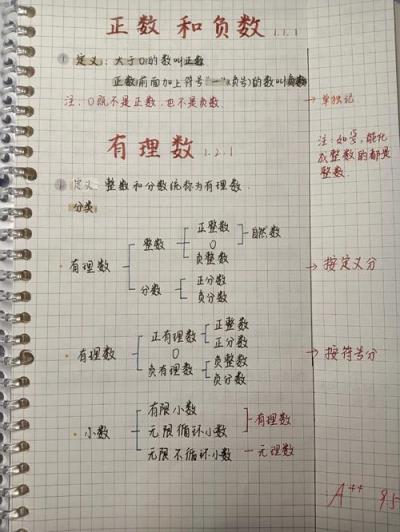 正数 和 负数 1.1.1
① 定义: 大于0的数叫正数
正数前面加上符号"一"(负号)的数叫负数
注: 0既不是正数,也不是负数. → 单独记
有理数 1.2.1
注: 如 能化
成整数的都是
整数
① 定义: 整数和分数统称为有理数.
分类:
正整数
整数 0 自然数
负整数
· 有理数 → 按定义分
正分数
分数
负分数
正整数
正有理数
正分数
· 有理数 0 → 按符号分
负整数
负有理数
负分数
有限小数
· 小数 无限循环小数 有理数
无限不循环小数 — 无理数
A++ 95